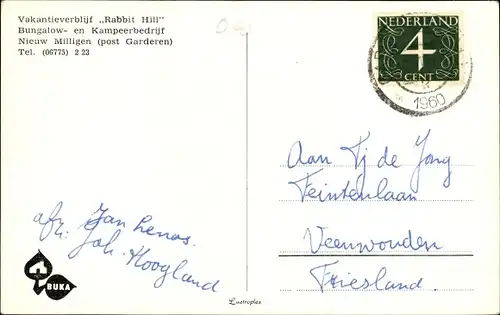 Vakantieverblijf „Rabbit Hill"
Bungalow- en Kampeerbedrijf
Nieuw Milligen (post Garderen)
Tel. (06775) 2 23
NEDERLAND
4
CENT
1960
Aan Tj de Jong
Feintenlaan
Veenwouden
Friesland.
afz: Jan
Joh. Hoogland
BUKA
Lustroplex